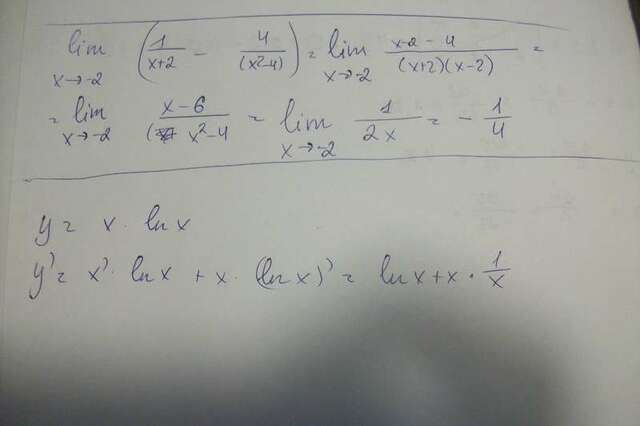 lim x→-2 (1/(x+2) - 4/(x²-4)) = lim x→-2 (x-2-4)/((x+2)(x-2)) =
= lim x→-2 (x-6)/(x²-4) = lim x→-2 1/(2x) = -1/4
y = x · ln x
y' = x' · ln x + x · (ln x)' = ln x + x · 1/x